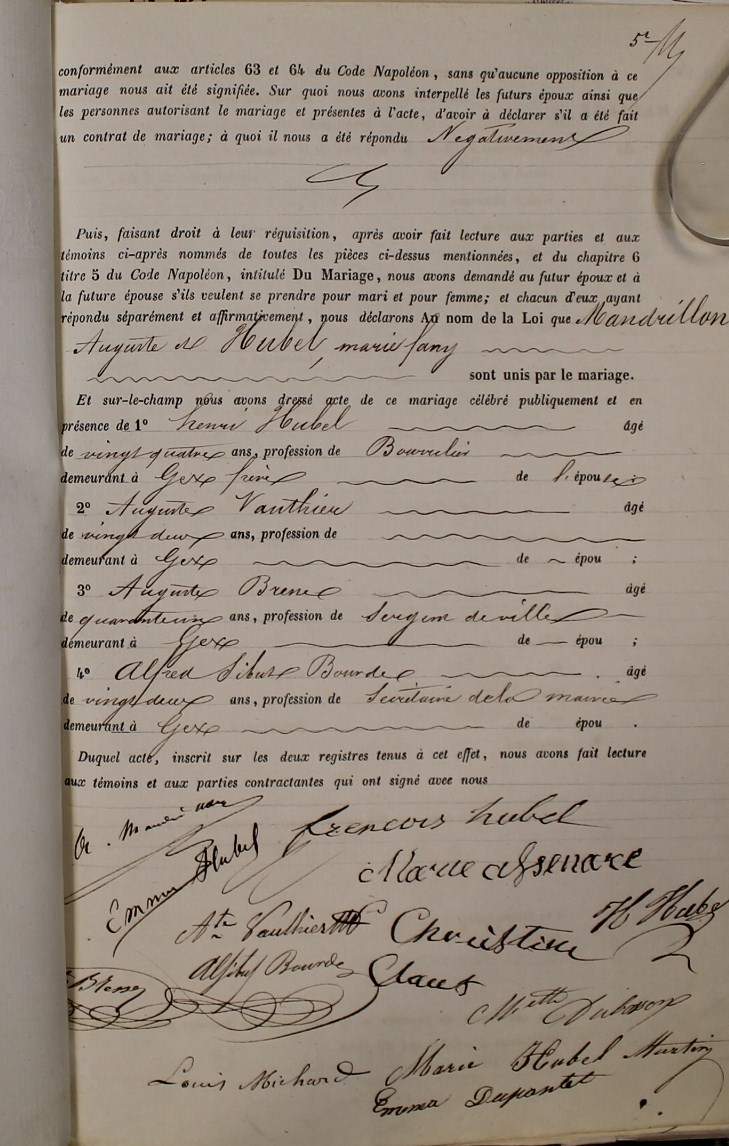 5
conformément aux articles 63 et 64 du Code Napoléon, sans qu'aucune opposition à ce
mariage nous ait été signifiée. Sur quoi nous avons interpellé les futurs époux ainsi que
les personnes autorisant le mariage et présentes à l'acte, d'avoir à déclarer s'il a été fait
un contrat de mariage; à quoi il nous a été répondu Négativement
Puis, faisant droit à leur réquisition, après avoir fait lecture aux parties et aux
témoins ci-après nommés de toutes les pièces ci-dessus mentionnées, et du chapitre 6
titre 5 du Code Napoléon, intitulé Du Mariage, nous avons demandé au futur époux et à
la future épouse s'ils veulent se prendre pour mari et pour femme; et chacun d'eux ayant
répondu séparément et affirmativement, nous déclarons Au nom de la Loi que Mandrillon
Auguste et Hubel, marie fany
sont unis par le mariage.
Et sur-le-champ nous avons dressé acte de ce mariage célébré publiquement et en
présence de 1° henri Hubel âgé
de vingt quatre ans, profession de Bourrelier
demeurant à Gex frère de l'épouse;
2° Auguste Vauthier âgé
de vingt deux ans, profession de
demeurant à Gex de épou ;
3° Auguste âgé
de quarante un ans, profession de Sergent de ville
demeurant à Gex de épou ;
4° Alfred Sibut Bourde âgé
de vingt deux ans, profession de Secrétaire de la mairie
demeurant à Gex de épou .
Duquel acte, inscrit sur les deux registres tenus à cet effet, nous avons fait lecture
aux témoins et aux parties contractantes qui ont signé avec nous
francois hubel
Emma Hubel
Marie
H Hubel
Ate Vauthier
Christine
Bourde
Claus
Marie Hubel Martin
Louis Michard
Emma Dupontet